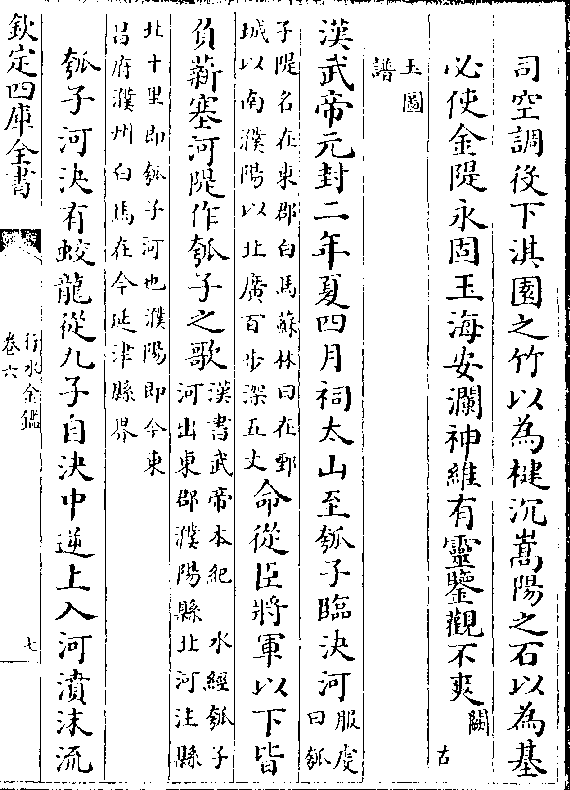 司空調後下淇園之竹以為楗沉嵩陽之石以為基
必使金隄永固玉海安瀾神維有靈鑒觀不爽闕
古
玉圖
譜
漢武帝元封二年夏四月祠太山至瓠子臨決河服虔
曰瓠
子隄名在東郡白馬蘇林曰在鄄
城以南濮陽以北廣百步深五丈命從臣將軍以下皆
負薪塞河隄作瓠子之歌漢書武帝本紀 水經瓠子
河出東郡濮陽縣北河注縣
北十里即瓠子河也濮陽即今東
昌府濮州白馬在今延津縣界
瓠子河決有蛟龍從九子自決中逆上入河濆沫流
欽定四庫全書
行水金鑑
卷六
七